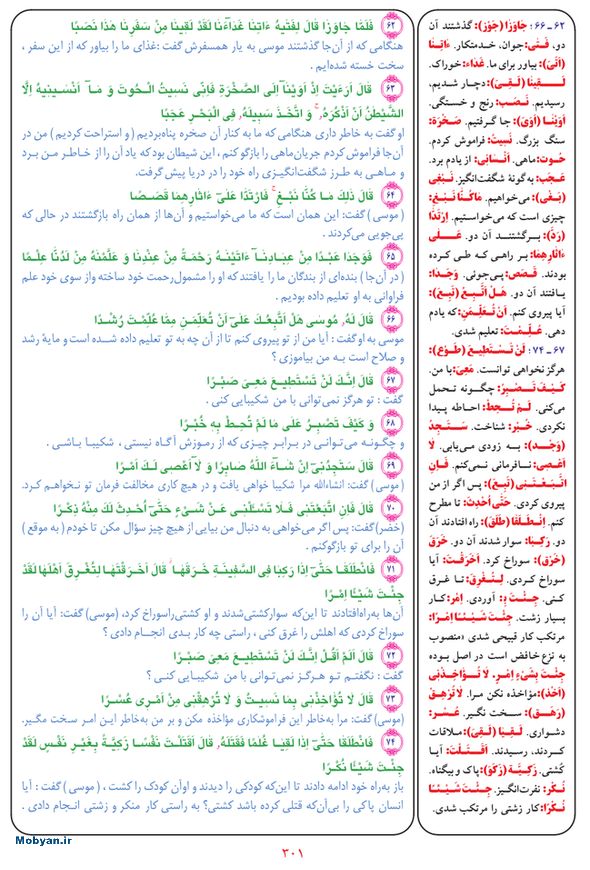 ۶۲
فَلَمَّا جَاوَزَا قَالَ لِفَتٰيهُ ءَاتِنَا غَدَآءَنَا لَقَدْ لَقِينَا مِنْ سَفَرِنَا هٰذَا نَصَبًا
هنگامی که از آن‌جا گذشتند موسی به یار همسفرش گفت :غذای ما را بیاور که از این سفر ،
سخت خسته شده‌ایم .
۶۳
قَالَ اَرَءَيْتَ اِذْ اَوَيْنَآ اِلَى الصَّخْرَةِ فَاِنّى نَسيتُ الْحُوتَ وَ مَآ اَنْسٰينيهُ اِلَّا
الشَّيْطٰنُ اَنْ اَذْكُرَهُ ۚ وَ اتَّخَذَ سَبيلَهُ فِى الْبَحْرِ عَجَبًا
او گفت به خاطر داری هنگامی که ما به کنار آن صخره پناه‌بردیم ( و استراحت کردیم ) من در
آن‌جا فراموش کردم جریان‌ماهی را بازگو کنم ، این شیطان بود که یاد آن را از خـاطـر مـن بـرد
و مـاهـی به طـرز شگفت‌انگیزی راه خود را در دریا پیش گرفت.
۶۴
قَالَ ذٰلِكَ مَا كُنَّا نَبْغِ ۚ فَارْتَدَّا عَلٰىٓ ءَاثَارِهِمَا قَصَصًا
( موسی ) گفت: این همان است که ما می‌خواستیم و آن‌ها از همان راه بازگشتند در حالی که
پی‌جویی می‌کردند .
۶۵
فَوَجَدَا عَبْدًا مِنْ عِبَادِنَآ ءَاتَيْنٰهُ رَحْمَةً مِنْ عِنْدِنَا وَ عَلَّمْنٰهُ مِنْ لَدُنَّا عِلْمًا
( در آن‌جا ) بنده‌ای از بندگان ما را یافتند که او را مشمول‌رحمت خود ساخته واز سوی خود علم
فراوانی به او تعلیم داده بودیم .
۶۶
قَالَ لَهُ مُوسٰى هَلْ اَتَّبِعُكَ عَلٰىٓ اَنْ تُعَلِّمَنِ مِمَّا عُلِّمْتَ رُشْدًا
موسی به او گفت : آیا من از تو پیروی کنم تا از آن چه به تو تعلیم داده شـده است و مایهٔ رشد
و صلاح است به من بیاموزی ؟
۶۷
قَالَ اِنَّكَ لَنْ تَسْتَطيعَ مَعِىَ صَبْرًا
گفت : تو هرگز نمی‌توانی با من شکیبایی کنی .
۶۸
وَ كَيْفَ تَصْبِرُ عَلٰى مَا لَمْ تُحِطْ بِهِ خُبْرًا
و چگونه می‌توانی در برابر چیزی که از رموزش آگـاه نیستی ، شکیبا بـاشـی .
۶۹
قَالَ سَتَجِدُنىٓ اِنْ شَآءَ اللّٰهُ صَابِرًا وَ لَآ اَعْصى لَكَ اَمْرًا
(موسی ) گفت: انشاءالله مرا شکیبا خواهی یافت و در هیچ کاری مخالفت فرمان تو نخـواهـم کـرد.
۷۰
قَالَ فَاِنِ اتَّبَعْتَنى فَـلَا تَسْـَٔلْنى عَـنْ شَـىْءٍ حَتّٰىٓ اُحْـدِثَ لَـكَ مِنْهُ ذِكْـرًا
(خضر) گفت: پس اگر می‌خواهی به دنبال من بیایی از هیچ چیز سؤال مکن تا خودم ( به موقع )
آن را برای تو بازگوکنم .
۷۱
فَانْطَلَقَا حَتّٰىٓ اِذَا رَكِبَا فِى السَّفينَةِ خَرَقَهَا ۖ قَالَ اَخَرَقْتَهَا لِتُغْرِقَ اَهْلَهَا لَقَدْ
جِئْتَ شَيْئًا اِمْرًا
آن‌ها به‌راه‌افتادند تا این‌که سوارکشتی‌شدند و او کشتی‌راسوراخ کرد، (موسی) گفت: آیا آن را
سوراخ کردی که اهلش را غرق کنی ، راستی چه کار بـدی انجـام دادی ؟
۷۲
قَالَ اَلَمْ اَقُلْ اِنَّكَ لَنْ تَسْتَطيعَ مَعِىَ صَبْرًا
گفت : نگفتـم تـو هـرگـز نمی‌توانی با من شکیبایی کنـی ؟
۷۳
قَالَ لَا تُؤَاخِذْنى بِمَا نَسيتُ وَ لَا تُرْهِقْنى مِنْ اَمْرى عُسْرًا
(موسی) گفت: مرا به‌خاطر این فراموشکاری مؤاخذه مکن و بر من به‌خاطر این امـر سخت مگیـر.
۷۴
فَانْطَلَقَا حَتّٰىٓ اِذَا لَقِيَا غُلٰمًا فَقَتَلَهُ قَالَ اَقَتَلْتَ نَفْسًا زَكِيَّةً بِغَيْرِ نَفْسٍ لَقَدْ
جِئْتَ شَيْئًا نُكْرًا
باز به‌راه خود ادامه دادند تا این‌که کودکی را دیدند و اوآن کودک را کشت ، ( موسی ) گفت : آیا
انسان پاکی را بی‌آن‌که قتلی کرده باشد کشتی؟ به راستی کار منکر و زشتی انجام دادی .
۶۲ ـ ۶۶: جَاوَزَا (جَوَزَ): گذشتند آن
دو، فَتٰى: جوان، خـدمتکار. ءٰاتِـنَا
(اَتَىَ): بیاور برای ما. غَدَاء: خوراک.
لَـقـيـنَا (لَـقِـىَ): دچار شدیم،
رسیدیم. نَـصَب: رنج و خستگی.
اَوَيْنَا (اَوَىَ): جا گرفتیم. صَخْرَة:
سنگ بزرگ. نَسيتُ: فراموش کردم.
حُوت: ماهی. اَنْسَانى: از یادم برد.
عَـجَب: به‌گونهٔ شگفت‌انگیز. نَـبْغى
(بَغَى): می‌خواهیم. مَاكُـنَّا نَـبْغِ:
چیزی است که می‌خواستیم. اِرْتَدَّا
(رَدَّ): برگشتند آن دو. عَـلٰـى
ءَاثَارِهِمَا: بر راهـی کـه طـی کـرده
بودند. قَـصَص: پـی‌جوئی. وَجَـدَا:
یـافتند آن دو. هَـلْ اَتَّـبِعُ (تَبِعَ):
آیا پیروی کنم. اَنْ تُـعَلِّـمَنِ: که یادم
دهی. عُـلِّـمْتَ: تعلیم شدی.
۶۷ ـ ۷۴: لَنْ تَسْتَطيعَ (طَوَعَ):
هرگز نخواهی توانست. مَعِىَ: با من.
كَـيْفَ تَـصْبِرُ: چگونه تـحمل
می‌کنی. لَـمْ تُـحِطْ: احاطه پیدا
نکردی. خُبْر: شناخت. سَـتَـجِدُ
(وَجَـدَ): بـه زودی مـی‌یابی. لَا
اَعْـصى: نـافرمانی نـمی‌کنم. فَـاِنِ
اتَّـبَـعْـتَنى (تَبِعَ): پس اگر از من
پیروی کردی. حَتّٰى اُحْدِثَ: تا مطرح
کنم. اِنْـطَلَـقَا (طَلَقَ): راه افتادند آن
دو. رَكِـبَا: سوار شدند آن دو. خَرَقَ
(خَرَقَ): سوراخ کرد. اَخَرَقْتَ: آیا
سوراخ کـردی. لِـتُغْرِقَ: تـا غـرق
کنی. جِئْتَ بِـ: آوردی. اِمْر: کـار
بسیار زشت. جِئْتَ شَـيْـئًا اِمْرًا:
مرتکب کار قبیحی شدی (منصوب
به نزع خافض است در اصـل بـوده
جِئْتَ بِشَىْءٍ اِمْرٍ. لَا تُـؤَاخِـذْنى
(اَخَذَ): مؤاخذه نکن مـرا. لَا تُرْهِقْ
(رَهَـقَ): سـخت نگیر. عُـسْـر:
دشواری. لَـقِيَا (لَقِىَ): مـلاقات
کـردند، رسیدند. اَقَـتَـلْتَ: آیـا
کُشتی. زَكِـيَّة (زَكَوَ): پاک و بیگناه.
نُـكْر: نفرت‌انگیز. جِـئْتَ شَـيْـئًـا
نُـكْرًا: کار زشتی را مرتکب شدی.
Mobyan.ir
۳۰۱